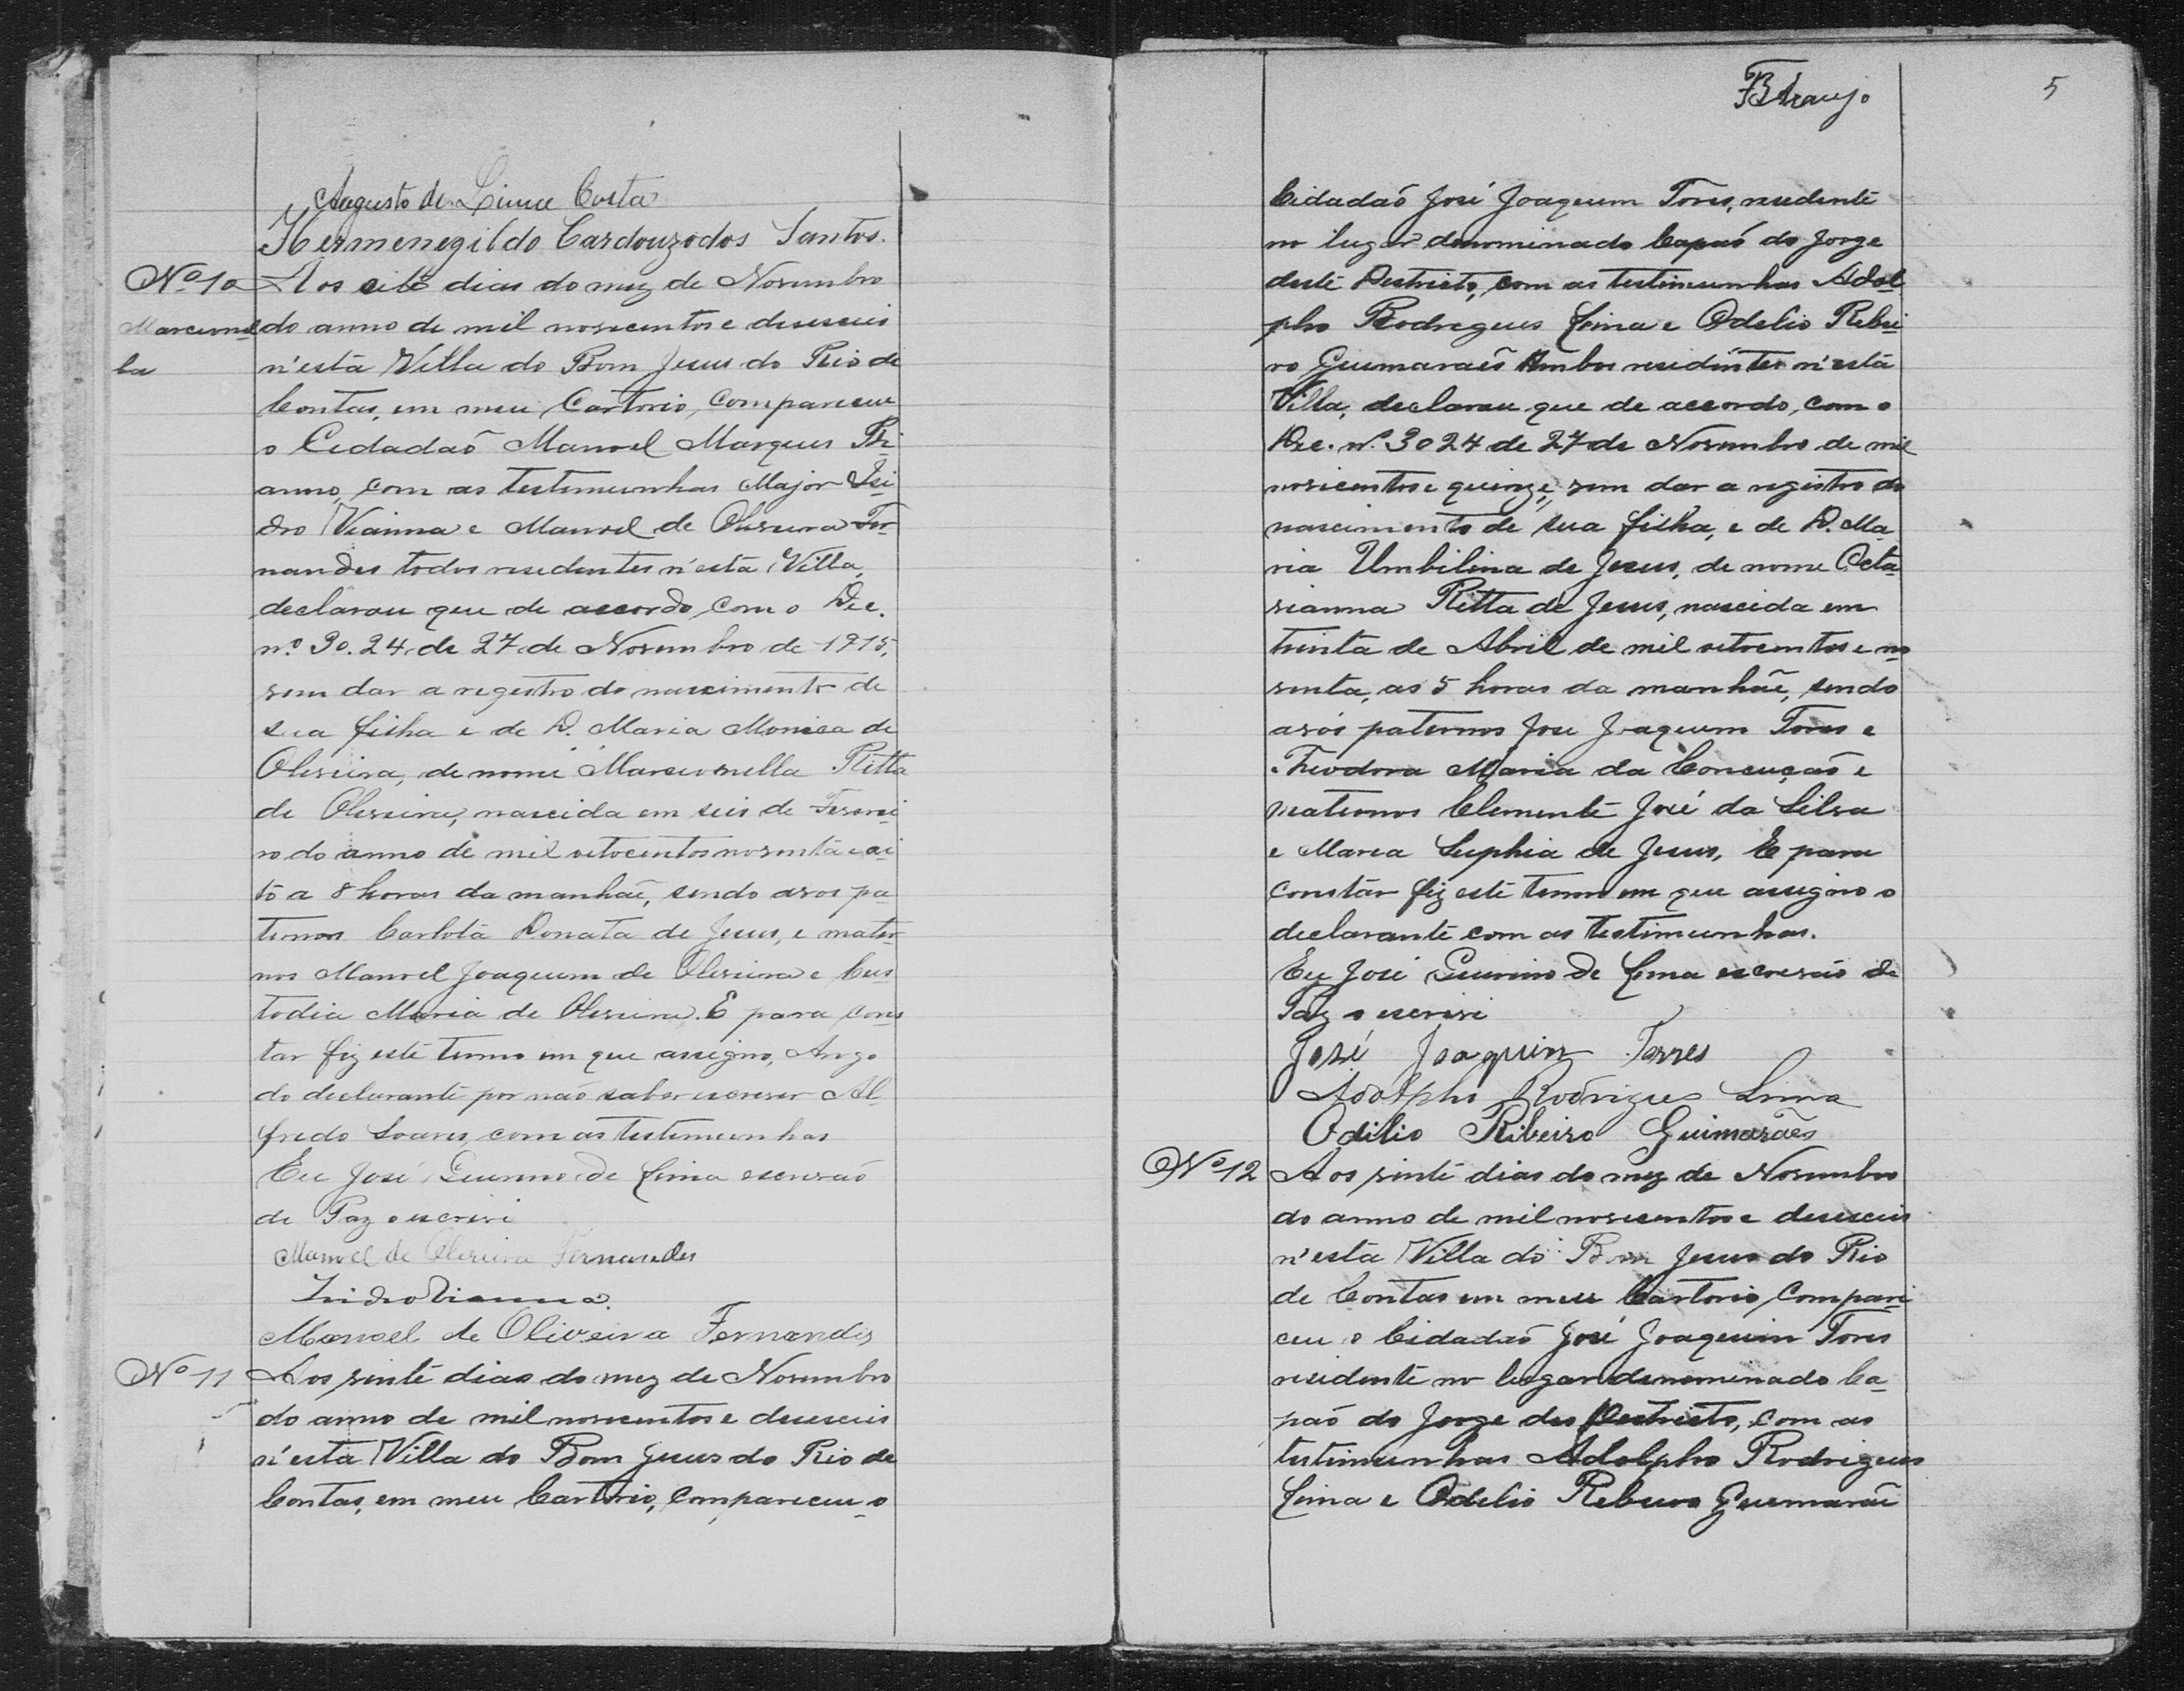 Augusto de Lima Costa
Hermenegildo Cardouzo dos Santos.
Nº 10
Marcionil
la
Aos oito dias do mez de Novembro
do anno de mil novecentos e deseseis
n'esta Villa do Bom Jesus do Rio de
Contas, em meu Cartorio, compareceu
o Cidadaõ Manoel Marques
anno, com as testimunhas Major Isi
dro Vianna e Manoel de Oliveira Fer
nandes todos residentes n'esta Villa,
declarou que de accordo, com o Dec.
n.º 30.24 de 27 de Novembro de 1915,
vem dar a registro do nascimento de
sua filha e de D. Maria Monica de
Oliveira, de nome Marcionilla Ritta
de Oliveira, nascida em seis de Feverei
ro do anno de mil oitocentos noventa e oi
to a 8 horas da manhaẽ, sendo avos pa
ternos Carlota Donata de Jesus, e mater
nos Manoel Joaquim de Oliveira e Cus
todia Maria de Oliveira. E para cons
tar fiz este termo em que assigno, Arogo
do declarante por naõ saber escrever Al
fredo Soares, com as testimunhas
Eu José Guirino de Lima escrivaõ
de Paz o escrivi
Manoel de Oliveira Fernandes
Izidro Vianna.
Manoel de Oliveira Fernandes
Nº 11
Aos vinte dias do mez de Novembro
do anno de mil novecentos e deseseis
n'esta Villa do Bom Jesus do Rio de
Contas, em meu Cartorio, compareceu o
FB Araujo
5
Cidadaõ José Joaquim Torres, residente
no lugar denominado Capaõ do Jorge
deste Destricto, com as testimunhas Adol
pho Rodregues Lima e Odelio Rebei
ro Guimaraẽs Ambos residintes n'esta
Villa, declarou que de accordo, com o
Dec. n.º 3024 de 27 de Novembro de mil
novicentos e quinze, vem dar a registro do
nascimento de sua filha, e de D. Ma
ria Umbilina de Jesus, de nome Octa
vianna Ritta de Jesus, nascida em
trinta de Abril de mil oitocentos e no
venta, as 5 horas da manhaẽ, sendo
avós paternos José Joaquim Torres e
Theodora Maria da Conceiçaõ e
maternos Clemente José da Silva
e Maria Suphia de Jesus, E para
constar fiz este termo em que assigno o
declarante com as testimunhas.
Eu José Guirino de Lima escrivaõ de
Paz o escrivi
José Joaquim Torres
Adolpho Rodrigues Lima
Odilio Ribeiro Guimarães
Nº 12
Aos vinte dias do mez de Novembro
do anno de mil novecentos e deseseis
n'esta Villa do Bom Jesus do Rio
de Contas em meu Cartorio, Compare
ceu o Cidadaõ José Joaquim Torres
residente no lugar denominado Ca
paõ do Jorge des Destricto, com as
testimunhas Adolpho Rodrigues
Lima e Odelio Rebeiro Guimaraẽ